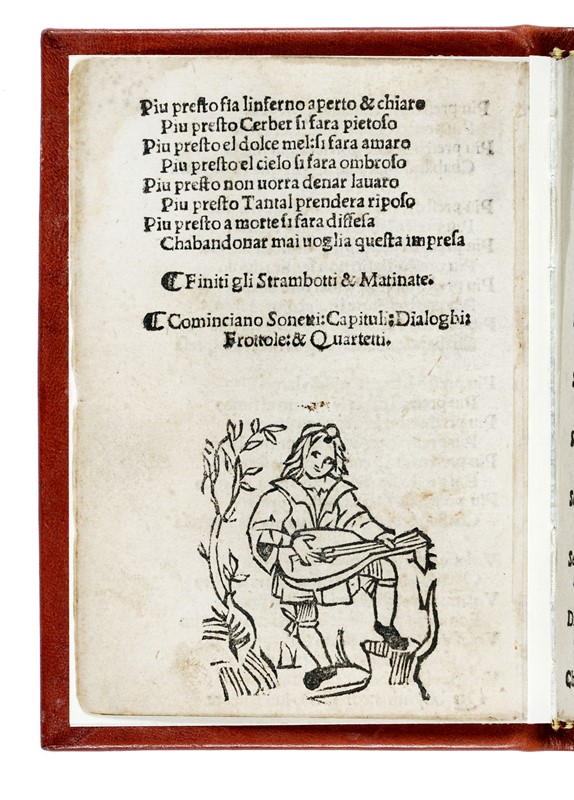 Piu presto fia linferno aperto & chiaro
Piu presto Cerber si fara pietoso
Piu presto el dolce mel:si fara amaro
Piu presto el cielo si fara ombroso
Piu presto non uorra denar lauaro
Piu presto Tantal prendera riposo
Piu presto a morte si fara diffesa
Chabandonar mai uoglia questa impresa
☾Finiti gli Strambotti & Matinate.
☾Cominciano Sonetti:Capituli:Dialoghi:
Frottole:& Quartetti.